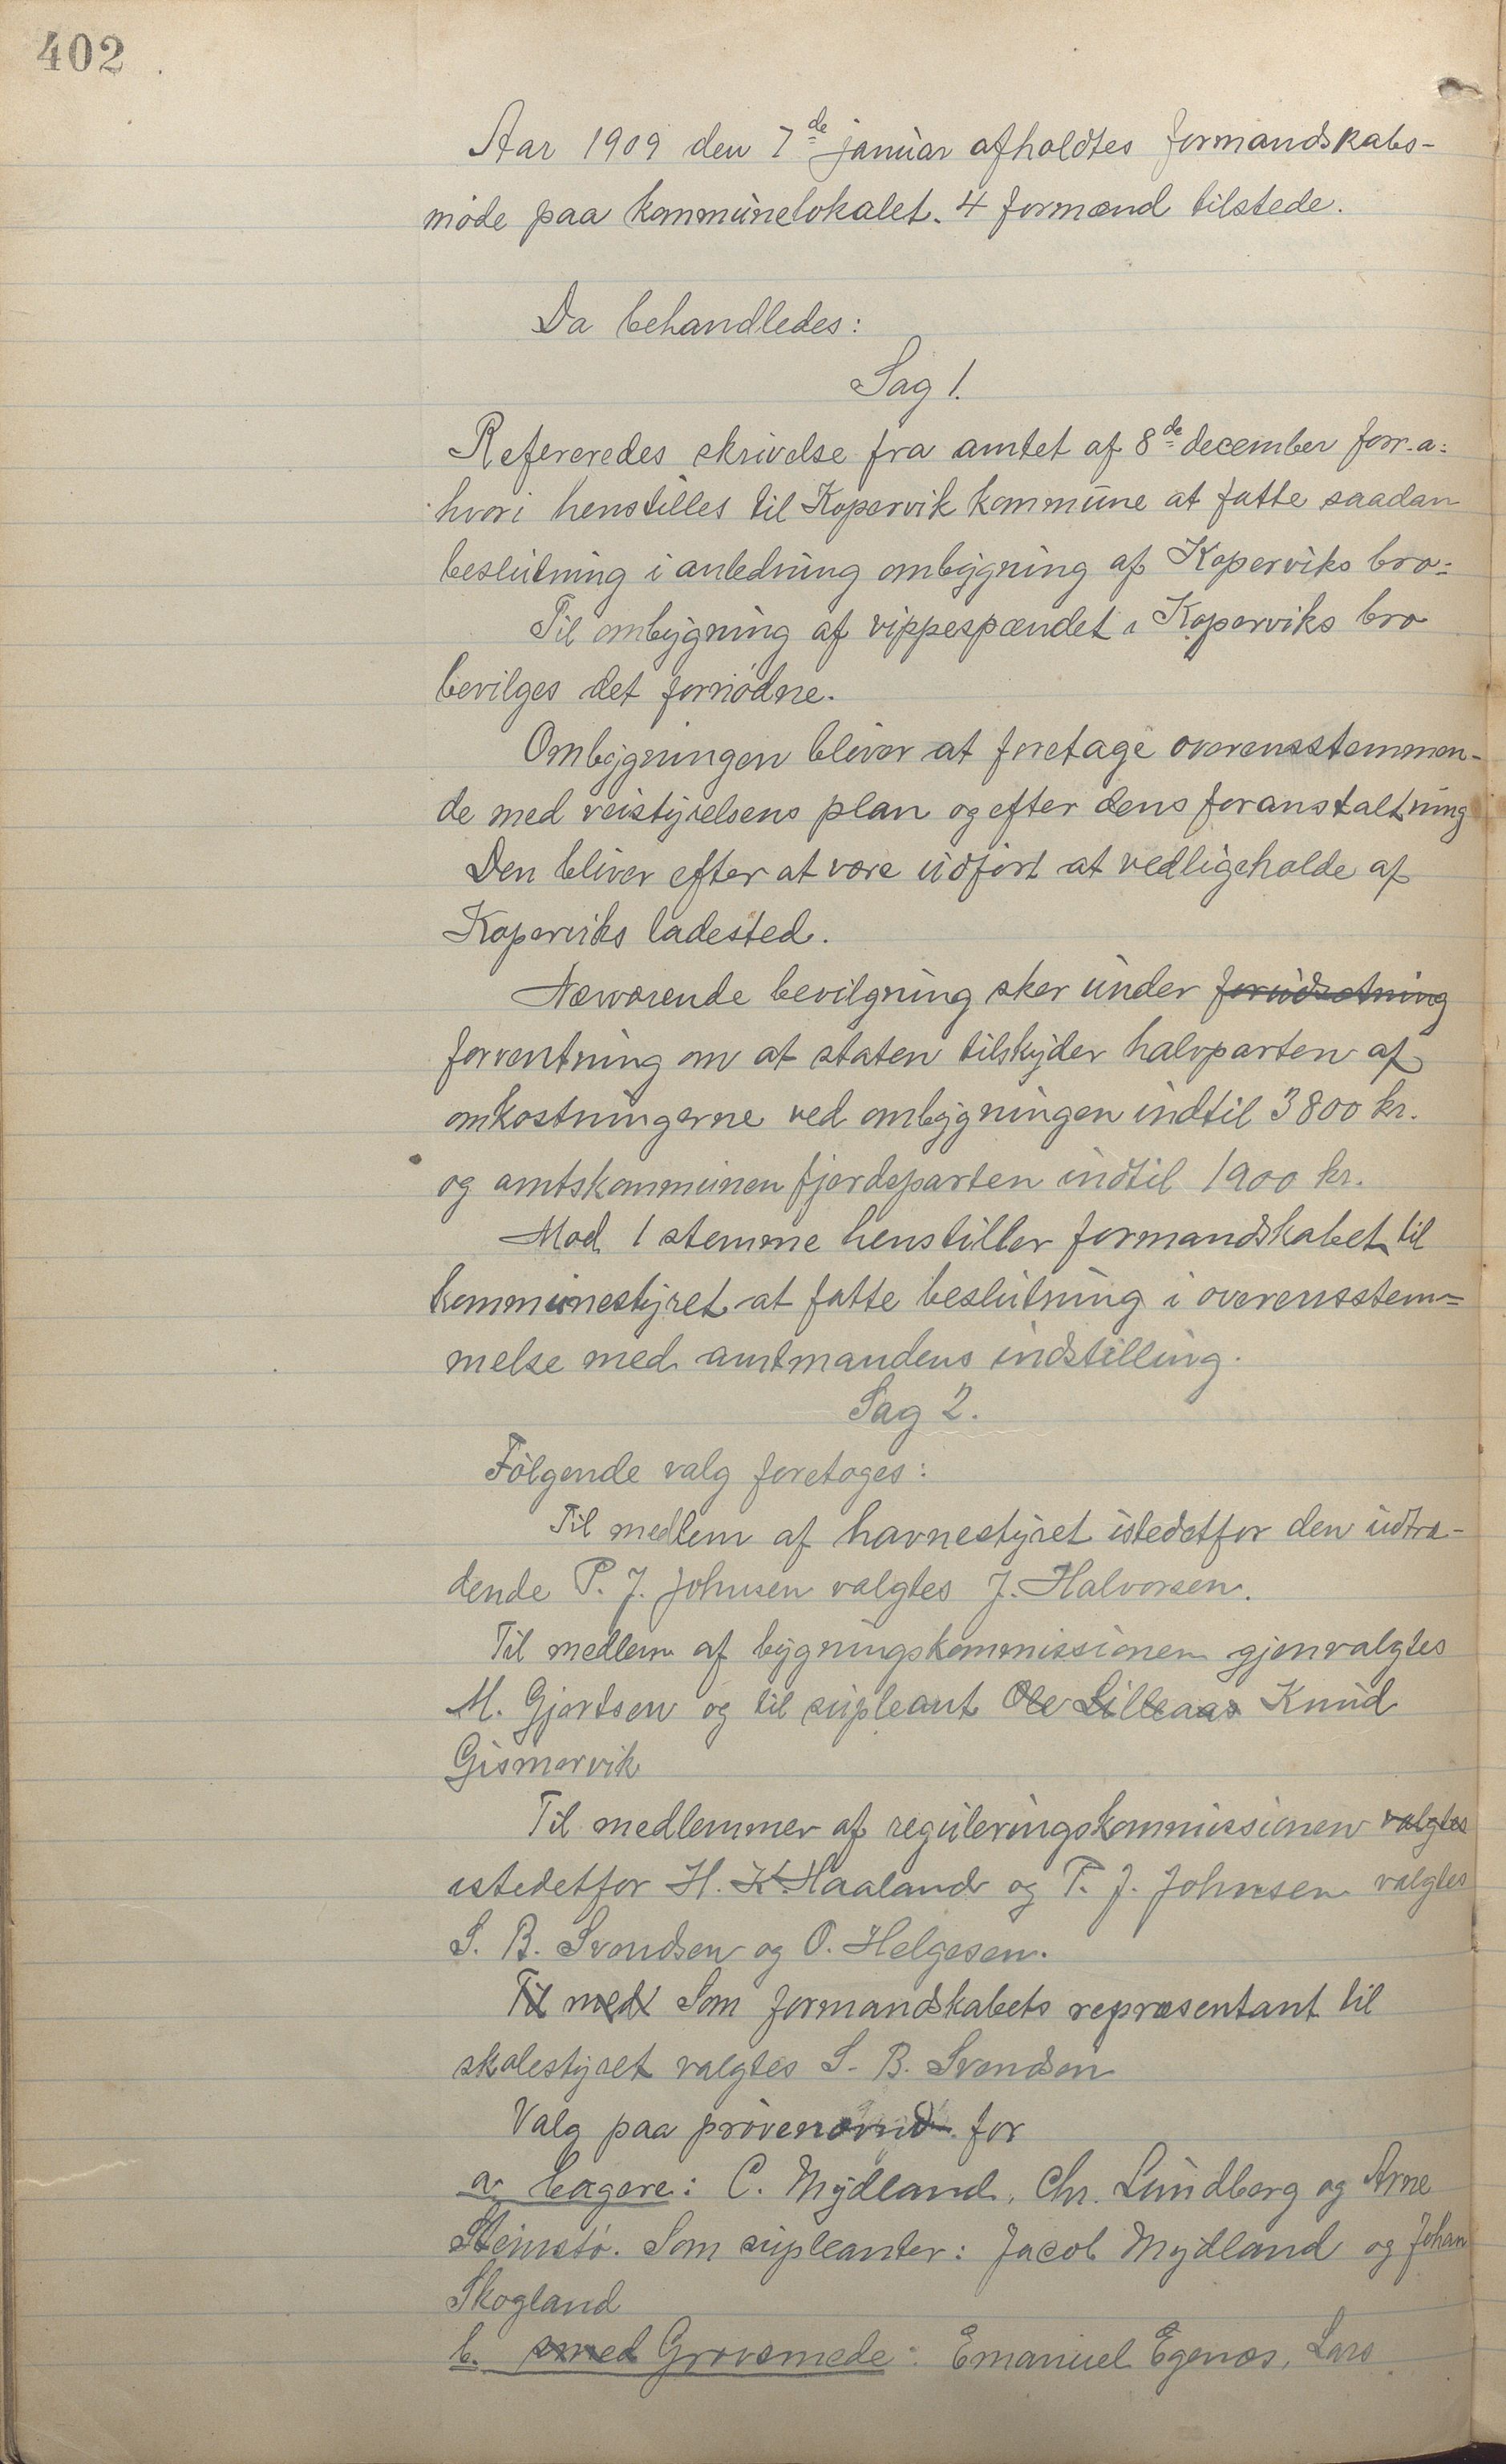 402
Aar 1909 den 7de januar afholdtes formandskabs-
møde paa kommunelokalet. 4 formænd tilstede.
Da behandledes:
Sag 1.
Refereredes skrivelse fra amtet af 8de december forr. a:
hvori henstilles til Kopervik kommune at fatte saadan
beslutning i anledning ombygning af Koperviks bro:
Til ombygning af vippespændet i Koperviks bro
bevilges det fornødne.
Ombygningen bliver at foretage overensstemmen-
de med veistyrelsens plan og efter dens foranstaltning
Den bliver efter at være udført at vedligeholde af
Koperviks ladested.
Nærværende bevilgning sker under forudsætning
forventning om at staten tilskyder halvparten af
omkostningerne ved ombygningen indtil 3800 kr.
og amtskommunen fjerdeparten indtil 1900 kr.
Mod 1 stemme henstiller formandskabet til
kommunestyret at fatte beslutning i overensstem=
melse med amtmandens indstilling.
Sag 2.
Følgende valg foretoges:
Til medlem af havnestyret istedetfor den udtræ-
dende P. J. Johnsen valgtes J. Halvorsen.
Til medlem af bygningskommissionen gjenvalgtes
M. Gjertsen og til supleant Ole Lilleaas Knud
Gismervik
Til medlemmer af reguleringskommissionen valgtes
istedetfor H. K. Haaland og P. J. Johnsen valgtes
S. B. Svendsen og O. Helgesen.
Til med Som formandskabets repræsentant til
skolestyret valgtes S. B. Svendsen
Valg paa prøvenævnd for
a. bagere: C. Mydland, Chr. Lundberg og Arne
Steinstø. Som supleanter: Jacob Mydland og Johan
Skogland
b. smed Grovsmede: Emanuel Egenæs, Lars